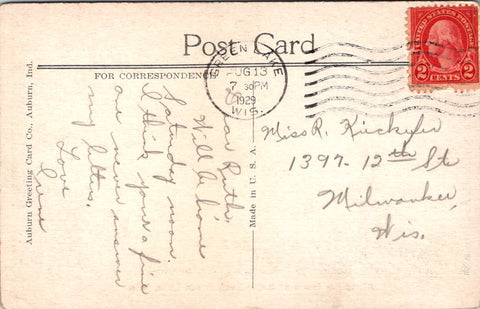 Post Card
FOR CORRESPONDENCE
GREEN LAKE
AUG 13
7 30 PM
1929
WIS.
UNITED STATES POSTAGE
2 CENTS 2
Auburn Greeting Card Co., Auburn, Ind.
Made in U. S. A.
Dear Ruth,
Will be home
Saturday noon.
I think your a fine
one never answer
my letters.
Love
Miss R.
1397-12th St
Milwaukee,
Wis.